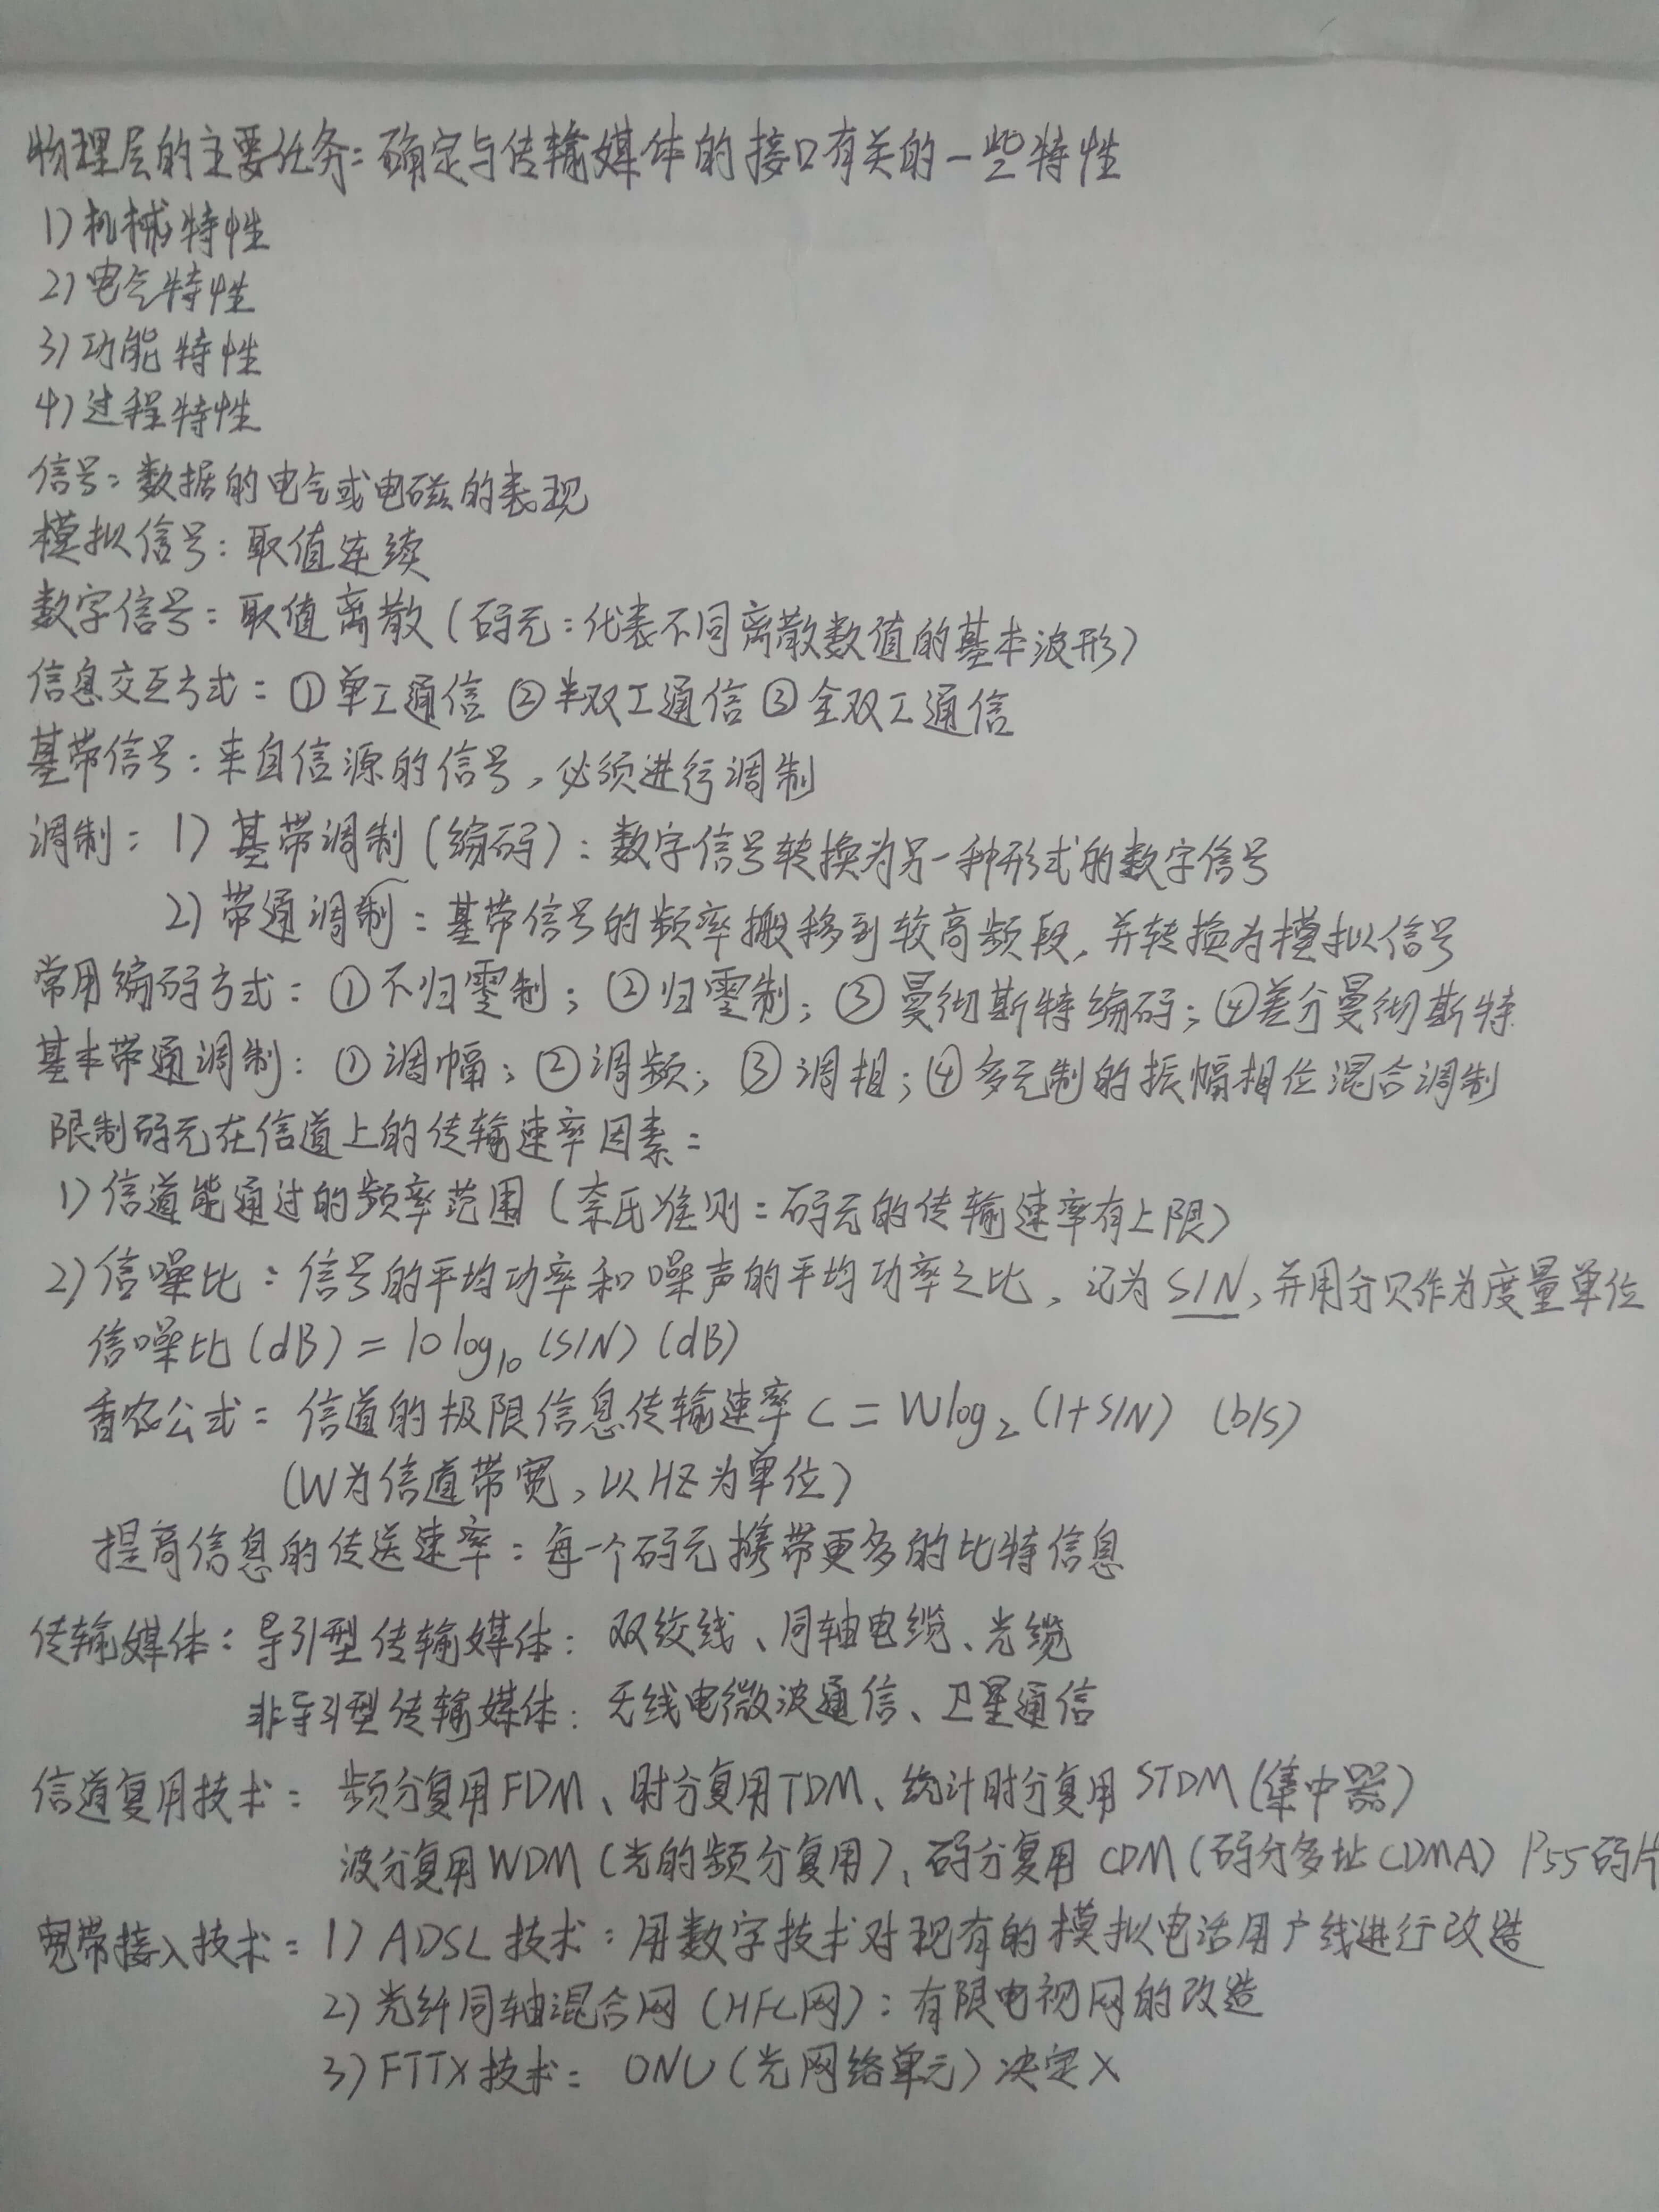 物理层的主要任务：确定与传输媒体的接口有关的一些特性
1）机械特性
2）电气特性
3）功能特性
4）过程特性
信号：数据的电气或电磁的表现
模拟信号：取值连续
数字信号：取值离散（码元：代表不同离散数值的基本波形）
信息交互方式：①单工通信 ②半双工通信 ③全双工通信
基带信号：来自信源的信号，必须进行调制
调制：1）基带调制（编码）：数字信号转换为另一种形式的数字信号
2）带通调制：基带信号的频率搬移到较高频段，并转换为模拟信号
常用编码方式：①不归零制；②归零制；③曼彻斯特编码；④差分曼彻斯特
基本带通调制：①调幅；②调频；③调相；④多元制的振幅相位混合调制
限制码元在信道上的传输速率因素：
1）信道能通过的频率范围（奈氏准则：码元的传输速率有上限）
2）信噪比：信号的平均功率和噪声的平均功率之比，记为S/N，并用分贝作为度量单位
信噪比（dB）＝10 log₁₀（S/N）（dB）
香农公式：信道的极限信息传输速率C＝Wlog₂（1+S/N）（b/s）
（W为信道带宽，以HZ为单位）
提高信息的传送速率：每一个码元携带更多的比特信息
传输媒体：导引型传输媒体：双绞线、同轴电缆、光缆
非导引型传输媒体：无线电微波通信、卫星通信
信道复用技术：频分复用FDM、时分复用TDM、统计时分复用STDM（集中器）
波分复用WDM（光的频分复用）、码分复用CDM（码分多址CDMA）P55码片
宽带接入技术：1）ADSL技术：用数字技术对现有的模拟电话用户线进行改造
2）光纤同轴混合网（HFC网）：有限电视网的改造
3）FTTX技术：ONU（光网络单元）决定X